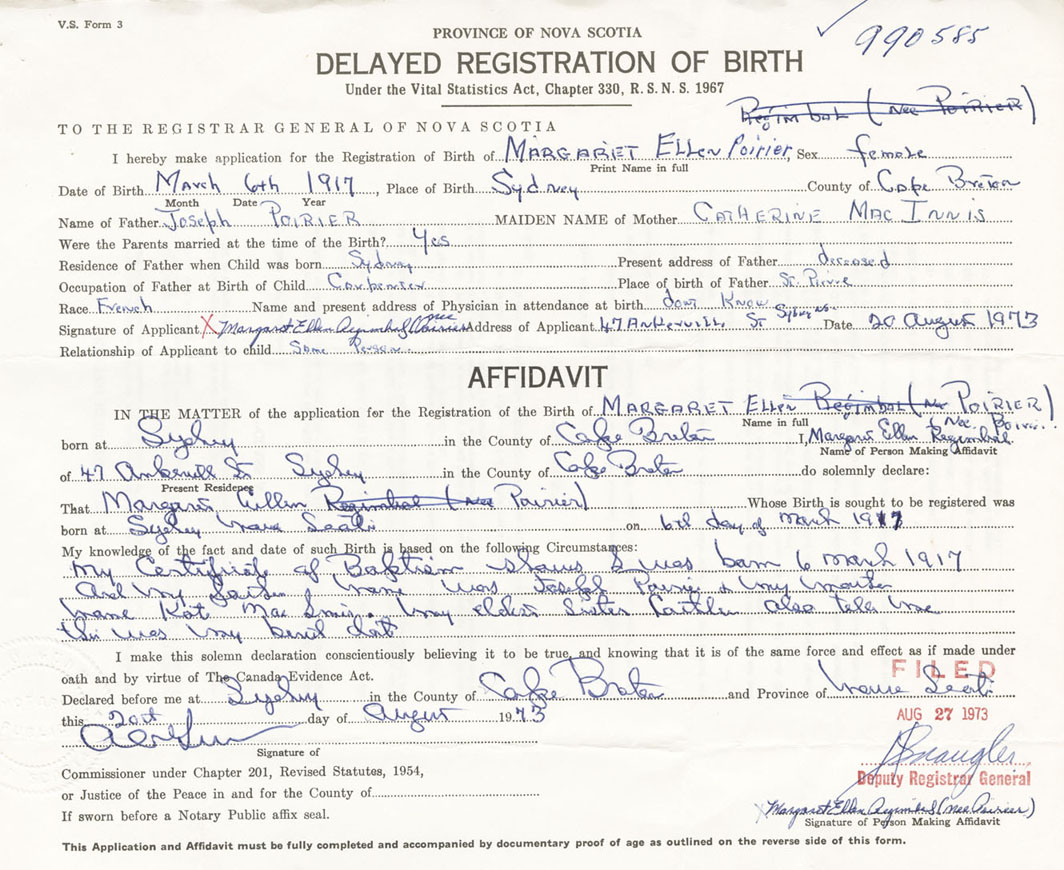 V.S. Form 3
PROVINCE OF NOVA SCOTIA
990585
DELAYED REGISTRATION OF BIRTH
Under the Vital Statistics Act, Chapter 330, R. S. N. S. 1967
Regimbal (nee POIRIER)
TO THE REGISTRAR GENERAL OF NOVA SCOTIA
I hereby make application for the Registration of Birth of MARGARET Ellen Poirier, Sex female
Print Name in full
Date of Birth March 6th 1917, Place of Birth Sydney County of Cape Breton
Month Date Year
Name of Father Joseph POIRIER MAIDEN NAME of Mother CATHERINE MAC INNIS
Were the Parents married at the time of the Birth? Yes
Residence of Father when Child was born Sydney Present address of Father
Occupation of Father at Birth of Child Carpenter Place of birth of Father St. Pierre
Race French Name and present address of Physician in attendance at birth dont Know
Signature of Applicant X Margaret Ellen Regimbal (nee Poirier) Address of Applicant 47 St Sydney Date 20 August 1973
Relationship of Applicant to child Same Person
AFFIDAVIT
IN THE MATTER of the application for the Registration of the Birth of MARGARET Ellen Regimbal (nee POIRIER)
Name in full
born at Sydney in the County of Cape Breton I, Margaret Ellen Regimbal nee Poirier
Name of Person Making Affidavit
of 47 St Sydney in the County of Cape Breton do solemnly declare:
Present Residence
That Margaret Ellen Regimbal (nee Poirier) Whose Birth is sought to be registered was
born at Sydney Nova Scotia on 6th day of March 1917
My knowledge of the fact and date of such Birth is based on the following Circumstances:
My Certificate of Baptism shows I was born 6 March 1917
And my name was Joseph Poirier & my
name Kat Mac Innis. My eldest sister also me
this was my birth
I make this solemn declaration conscientiously believing it to be true, and knowing that it is of the same force and effect as if made under
oath and by virtue of The Canada Evidence Act.
FILED
Declared before me at Sydney in the County of Cape Breton and Province of Nova Scotia
this day of August 1973
AUG 27 1973
Signature of
Commissioner under Chapter 201, Revised Statutes, 1954,
Deputy Registrar General
or Justice of the Peace in and for the County of
Margaret Ellen Regimbal (nee Poirier)
If sworn before a Notary Public affix seal.
Signature of Person Making Affidavit
This Application and Affidavit must be fully completed and accompanied by documentary proof of age as outlined on the reverse side of this form.